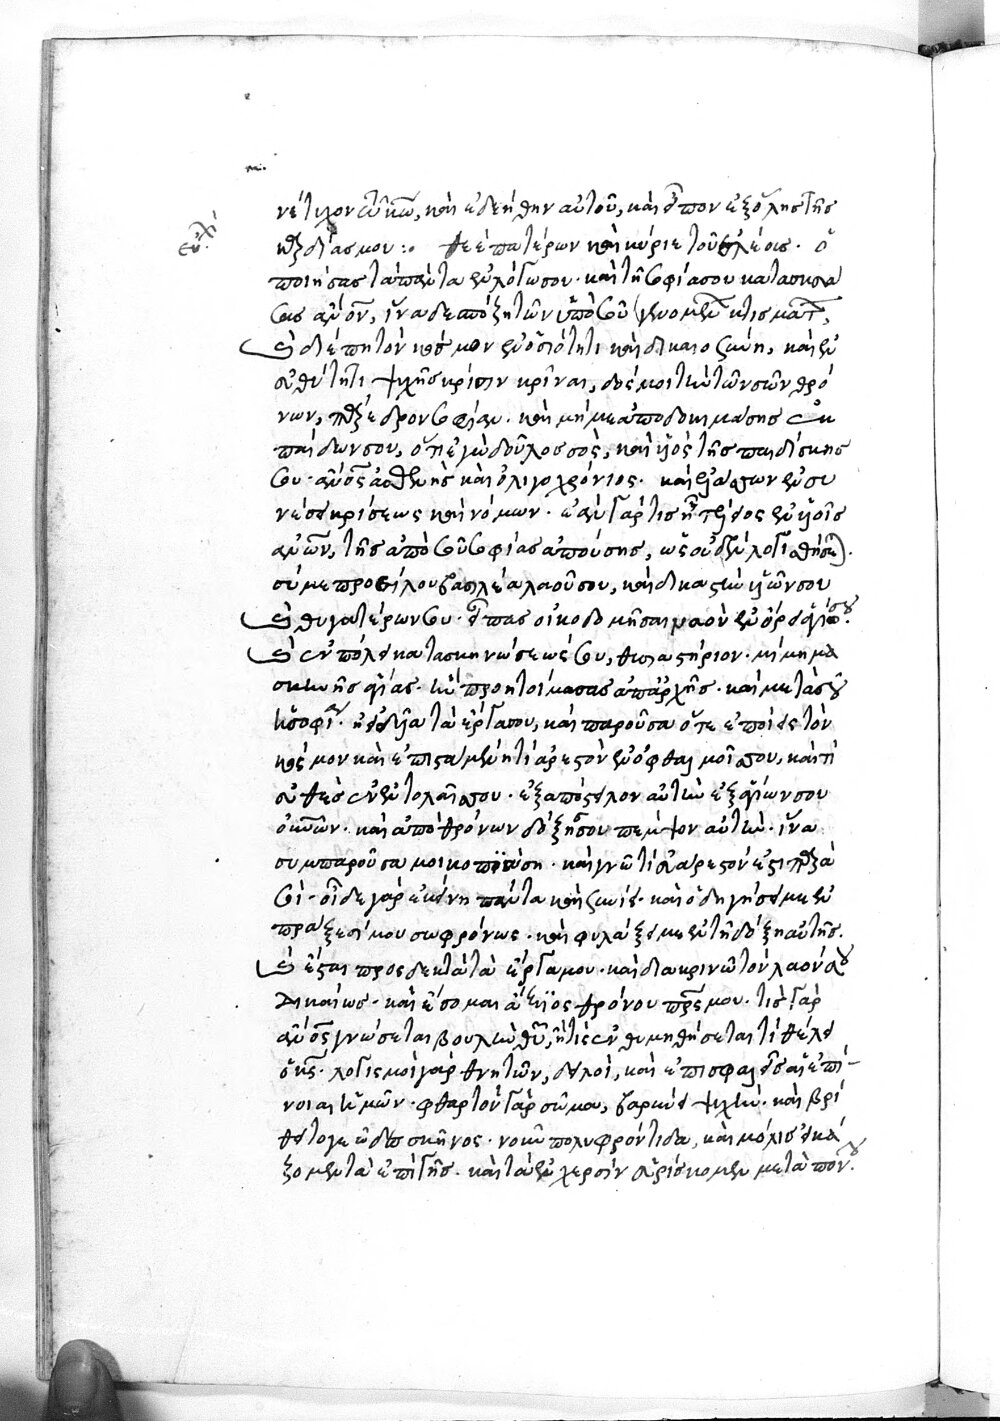 εὐχή
νέτυχον τῷ κῶ, καὶ ἐδεήθην αὐτοῦ, καὶ εἶπον ἐξ ὅλης τῆς
καρδίας μου :· θεὲ πατέρων καὶ κύριε τοῦ ἐλέους · ὁ
ποιήσας τὰ πάντα ἐν λόγω σου · καὶ τῇ σοφία σου κατασκευά
σας ἄνον, ἵνα δεσπόζη τῶν ὑπὸ σοῦ γενομένων κτισμάτων,
καὶ διέπη τὸν κόσμον ἐν ὁσιότητι καὶ δικαιοσύνη, καὶ ἐν
εὐθύτητι ψυχῆς κρίσιν κρίνη, δός μοι τὴν τῶν σῶν θρό
νων, πάρεδρον σοφίαν · καὶ μή με ἀποδοκιμάσης ἐκ
παίδων σου, ὅτι ἐγὼ δοῦλος σὸς, καὶ υἱὸς τῆς παιδίσκης
σου · ἄνος ἀσθενὴς καὶ ὀλιγοχρόνιος · καὶ ἐλάσσων ἐν συ
νέσει κρίσεως καὶ νόμων · κἂν γάρ τις ᾖ τέλειος ἐν υἱοῖς
ἀνων, τῆς ἀπὸ σοῦ σοφίας ἀπούσης, εἰς οὐδὲν λογισθήσεται.
σύ με προείλου βασιλέα λαοῦ σου, καὶ δικαστὴν υἱῶν σου
καὶ θυγατέρων σου · εἶπας οἰκοδομῆσαι ναὸν ἐν ὄρει ἁγίω σου.
καὶ ἐν πόλει κατασκηνώσεώς σου, θυσιαστήριον · μίμημα
σκηνῆς ἁγίας · ἣν προητοίμασας ἀπαρχῆς · καὶ μετὰ σοῦ
ἡ σοφία · ἡ εἰδυῖα τὰ ἔργα σου, καὶ παροῦσα ὅτε ἐποίεις τὸν
κόσμον καὶ ἐπισταμένη τί ἀρεστὸν ἐν ὀφθαλμοῖς σου, καὶ τί
εὐθὲς ἐν ἐντολαῖς σου · ἐξαπόστειλον αὐτὴν ἐξ ἁγίων σου
οὐνῶν · καὶ ἀπὸ θρόνων δόξης σου πέμψον αὐτὴν · ἵνα
συμπαροῦσα μοι κοπιάση · καὶ γνῶ τί εὐάρεστόν ἐστι παρὰ
σοί · οἶδε γὰρ ἐκείνη πάντα καὶ ξυνίει · καὶ ὁδηγήσει με ἐν
πράξεσί μου σωφρόνως · καὶ φυλάξει με ἐν τῇ δόξη αὐτῆς.
καὶ ἔσται προσδεκτὰ τὰ ἔργα μου · καὶ διακρινῶ τὸν λαόν σου
δικαίως · καὶ ἔσομαι ἄξιος θρόνου πρς μου · τίς γὰρ
ἄνος γνώσεται βουλὴν θῦ, ἢ τίς ἐνθυμηθήσεται τί θέλει
ὁ κς · λογισμοὶ γὰρ θνητῶν, δειλοί, καὶ ἐπισφαλεῖς αἱ ἐπί-
νοιαι ἡμῶν · φθαρτὸν γὰρ σῶμα, βαρύνει ψυχήν · καὶ βρί
θει τὸ γεῶδες σκῆνος · νοῦν πολυφρόντιδα, καὶ μόλις εἰκά
ζομεν τὰ ἐπὶ γῆς · καὶ τὰ ἐν χερσὶν εὑρίσκομεν μετὰ πόνου.